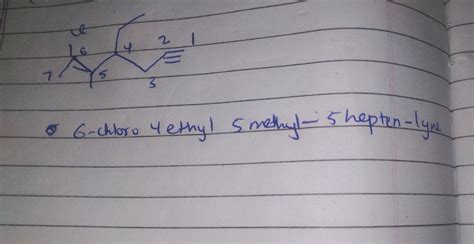 cl
6 4 2 1
7 5 3
6-chloro 4ethyl 5methyl- 5hepten-1yne